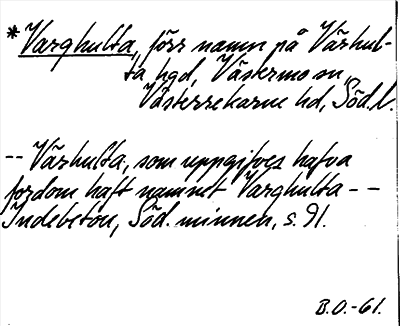 *Varghulta, förr namn på Vårhul-
ta hgd, Västermo sn,
Västerrekarne hd, Söd. l.
-- Vårhulta, som uppgifves hafva
fordom haft namnet Varghulta --
Indebetou, Söd. minnen, s. 91.
B.O.-61.